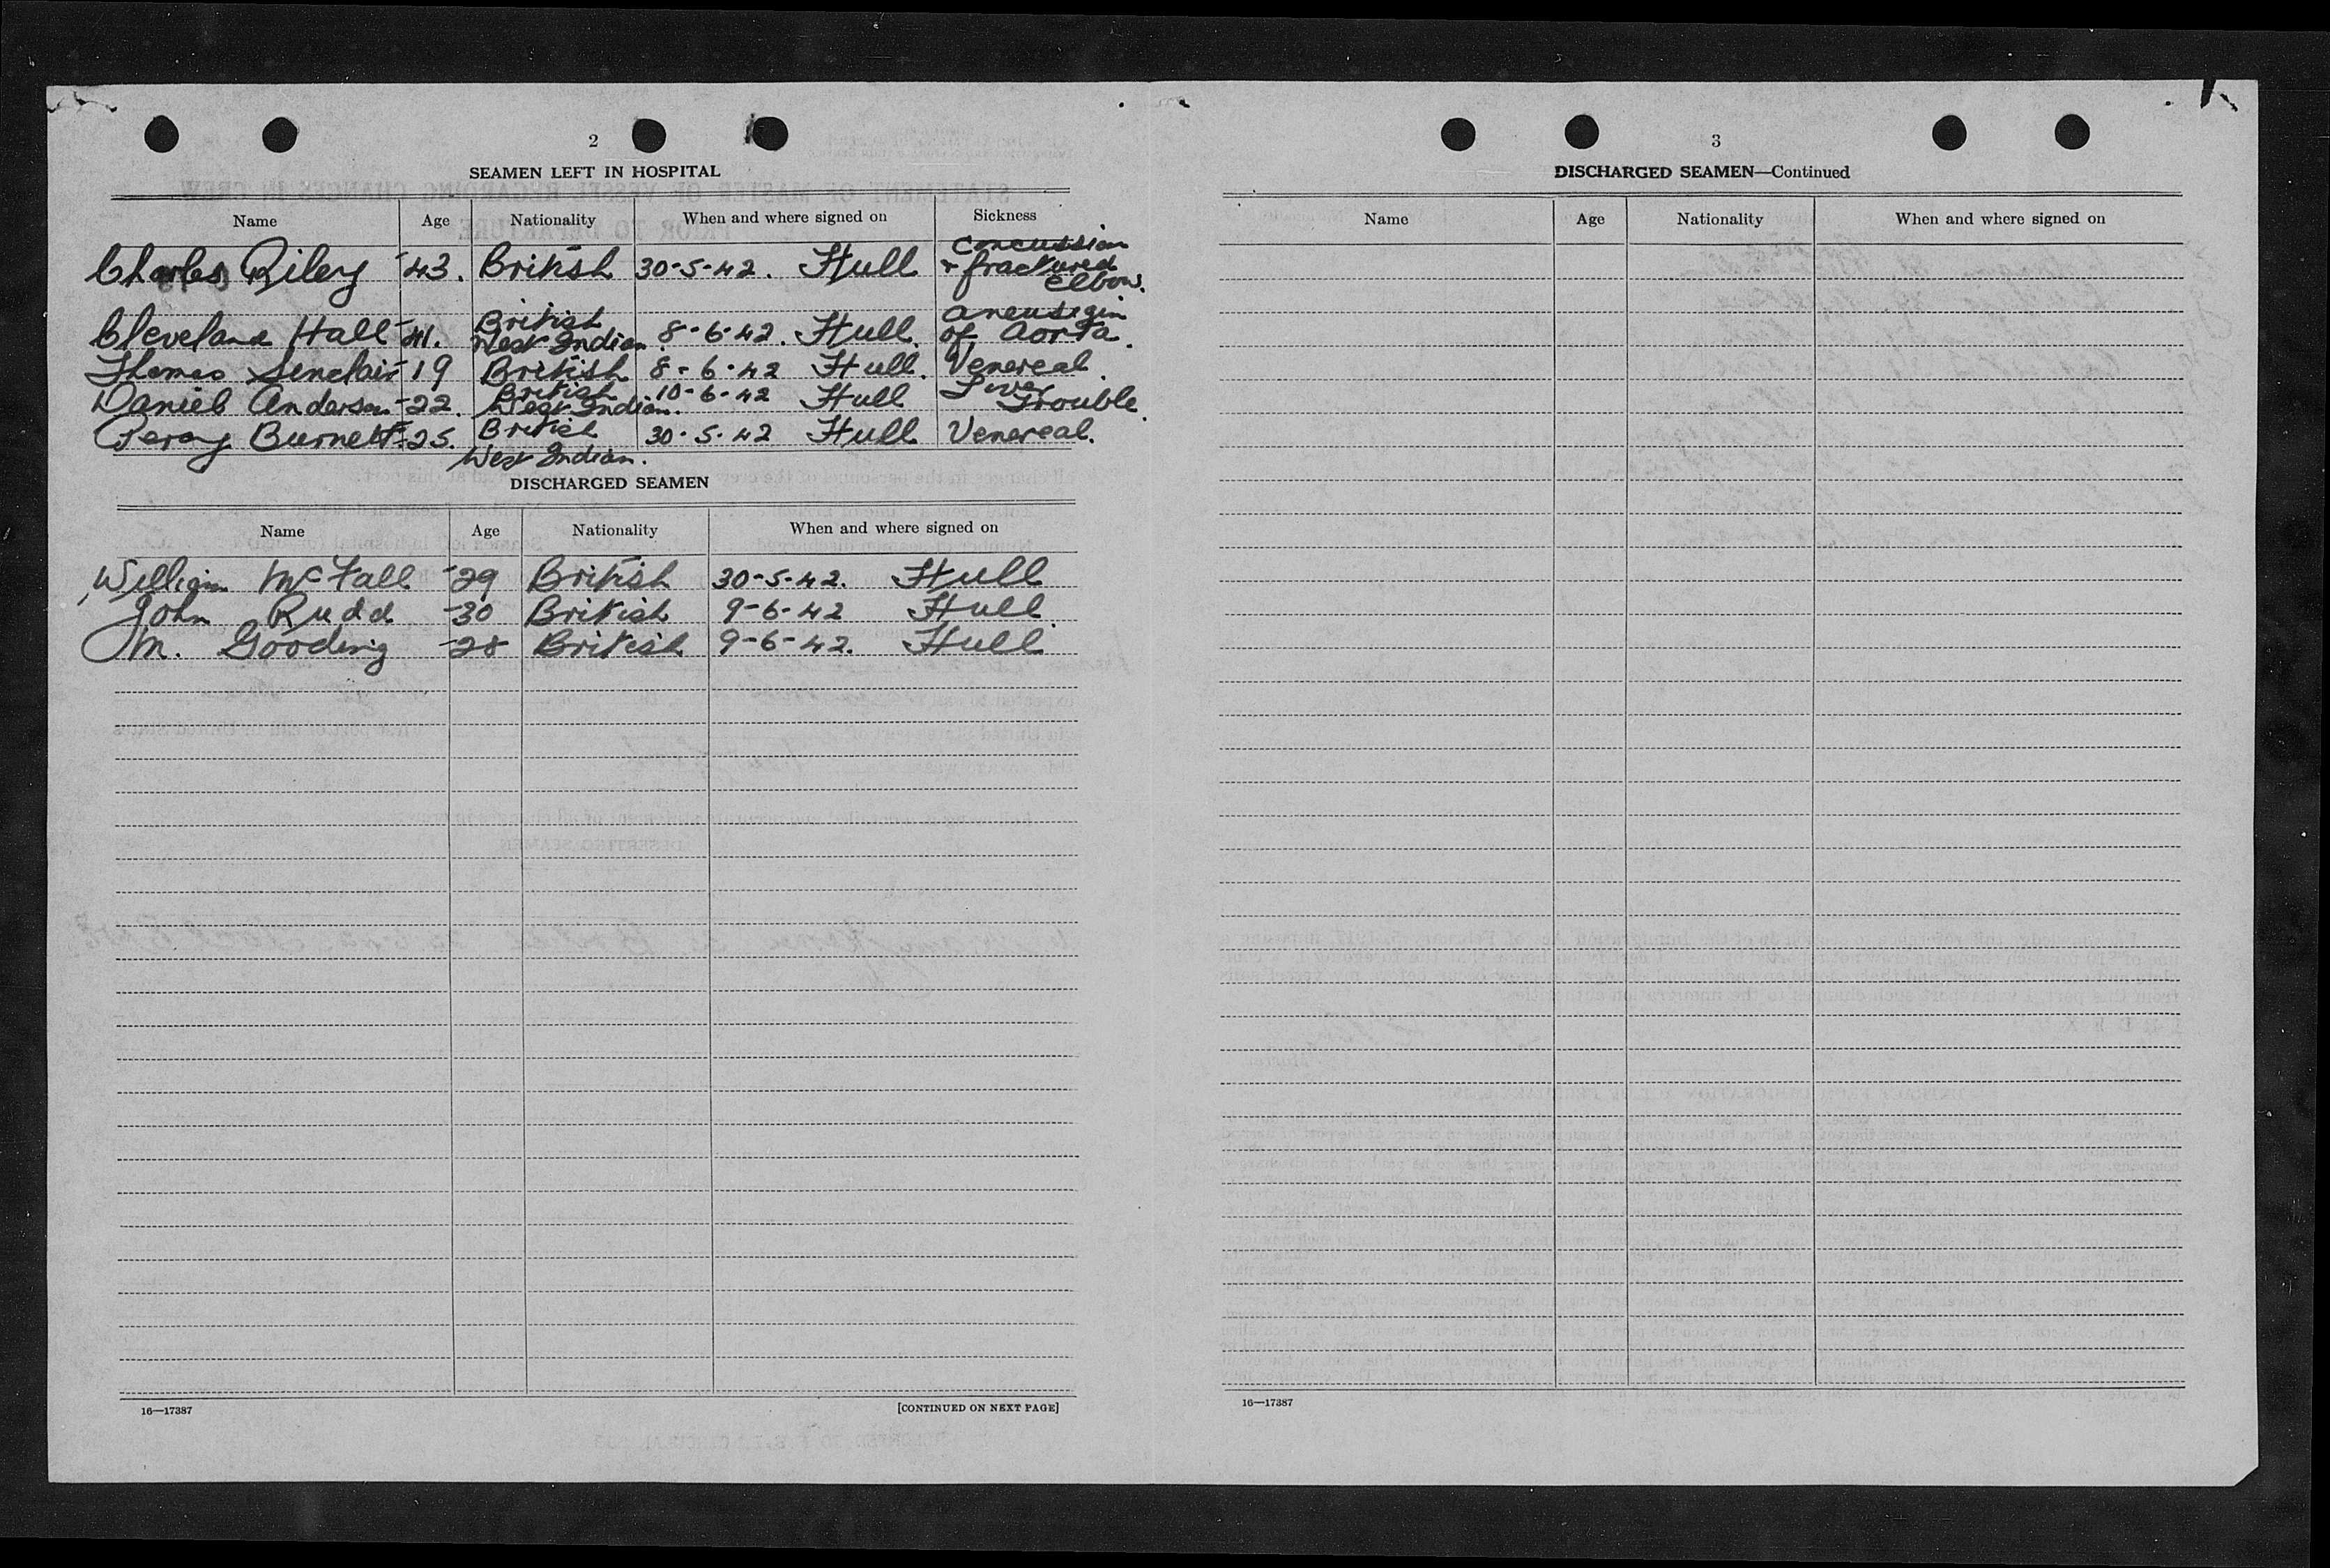 2
SEAMEN LEFT IN HOSPITAL
Name Age Nationality When and where signed on Sickness
Charles Riley 43. British 30-5-42. Hull Concussion + fractured elbow.
Cleveland Hall 41. British West Indian. 8-6-42. Hull. of Aorta.
Thomas Sinclair 19 British 8-6-42 Hull. Venereal.
Daniel Anderson 22. British West Indian. 10-6-42 Hull Liver Trouble.
Percy Burnett 25. British West Indian. 30-5-42 Hull Venereal.
DISCHARGED SEAMEN
Name Age Nationality When and where signed on
William McFall 29 British 30-5-42. Hull
John Rudd 30 British 9-6-42 Hull.
M. Gooding 28 British 9-6-42. Hull
16—17387 [CONTINUED ON NEXT PAGE]
3
DISCHARGED SEAMEN—Continued
Name Age Nationality When and where signed on
16—17387